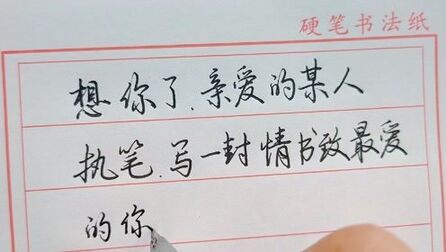 硬笔书法纸
想你了.亲爱的某人
执笔.写一封情书致最爱
的你